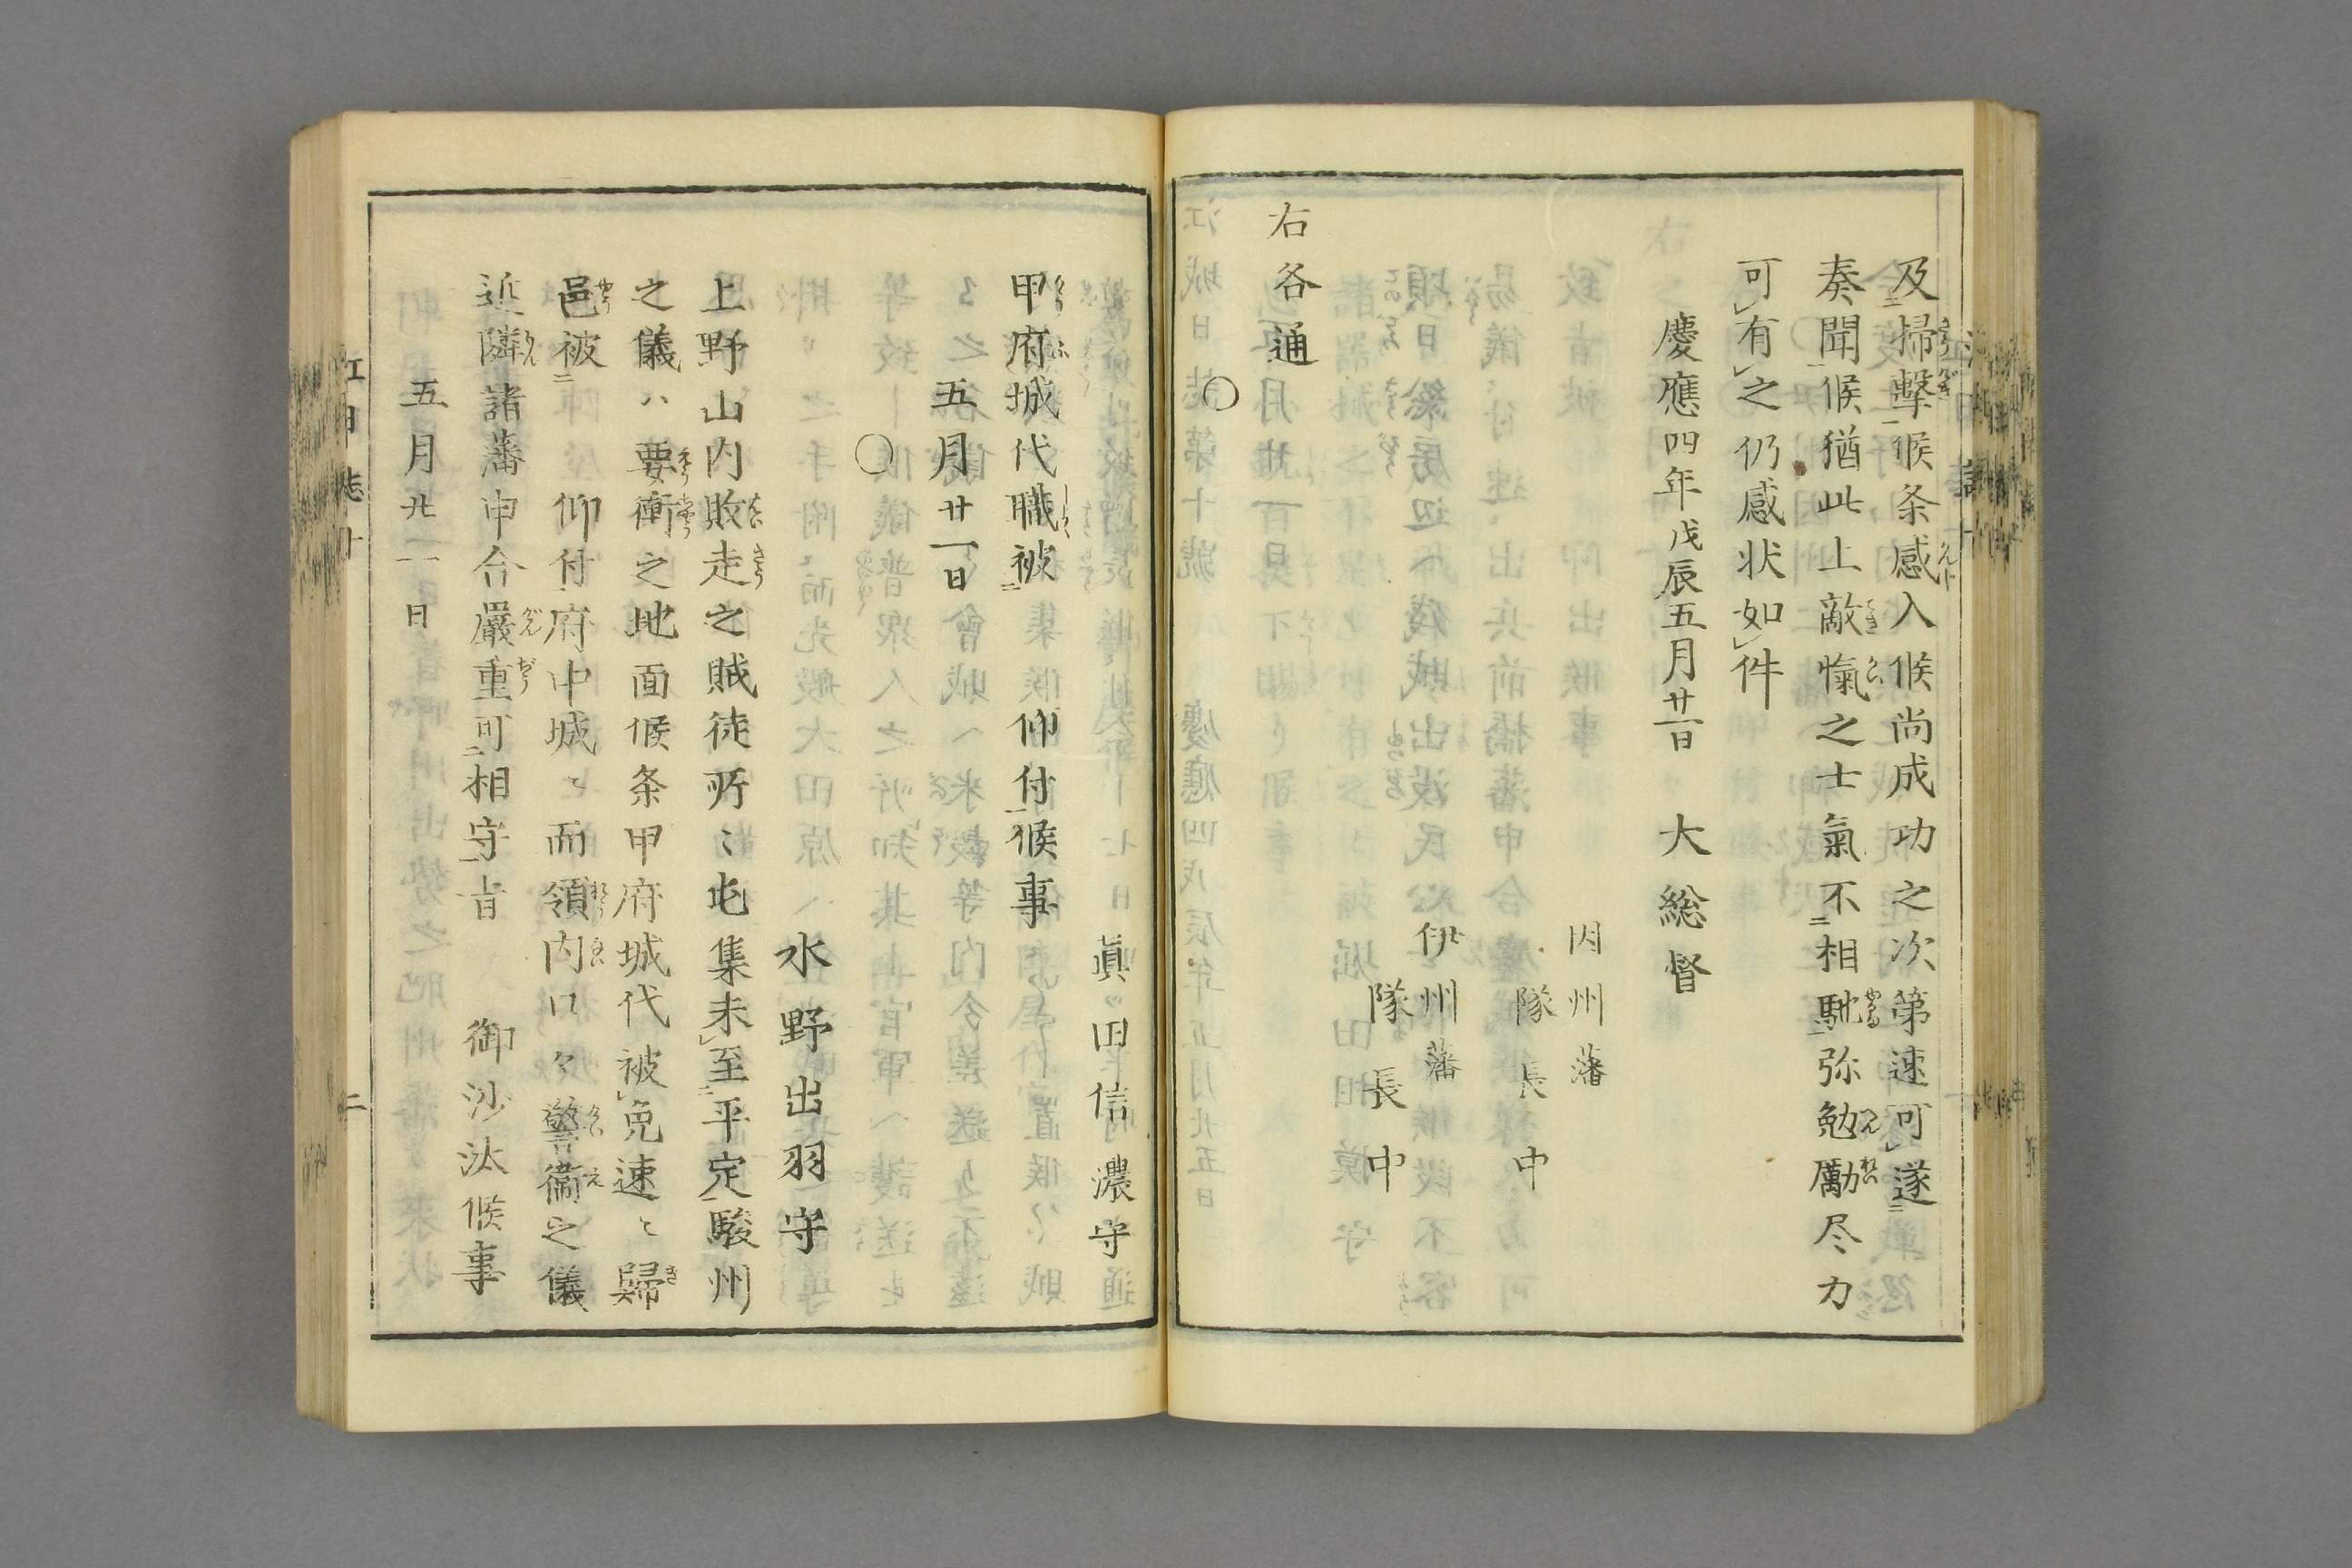 及掃撃候条感入候尚成功之次第速可遂
奏聞候猶此上敵愾之士氣不相馳弥勉勵尽力
可有之仍感状如件
慶應四年戊辰五月廿一日 大総督
因州藩
隊長中
伊州藩
隊長中
右各通
○
眞田信濃守
甲府城代職被 仰付候事
五月廿一日
○
水野出羽守
上野山内敗走之賊徒所々屯集未至平定駿州
之儀ハ要衝之地面候条甲府城代被免速ニ歸
邑被 仰付府中城ニ而領内口々警衞之儀
近隣諸藩申合嚴重可相守旨 御沙汰候事
五月廿一日
二